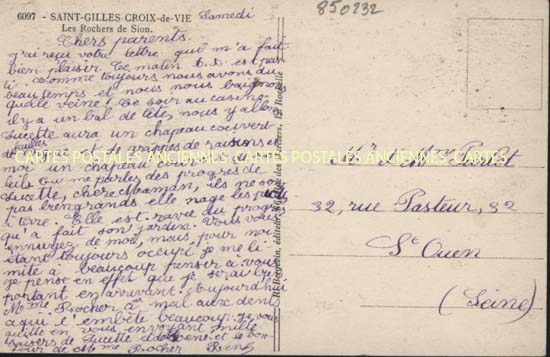 6097 - SAINT-GILLES CROIX-de-VIE
Les Rochers de Sion.
Samedi
850232
Chers parents.
j'ai reçu votre lettre qui m'a fait
bien plaisir. Ce matin est par
ti. Comme toujours nous avons du
beau temps et nous nous baignons
quelle veine! Ce soir au casino
il y a un bal de têtes, nous y allons
Lucette aura un chapeau couvert
de feuilles et de grappes de raisins et
moi un chapeau
tu me parles des progrès de
Lucette, chère Maman, ils ne sont
pas bien grands elle nage les pieds
à terre. Elle est ravie du progrès
qu'a fait son jardin. Vous vous
ennuyez de moi, mais pour moi
étant toujours occupé je me li
mite à beaucoup penser à vous
je pense en effet que je serai
portant en arrivant. Aujourd'hui
Mme Rocher a mal aux dents
ce qui l'embête beaucoup. Je vous
quitte en vous envoyant mille
baisers de Lucette et le bon
jour de Mme Rocher René
CARTES POSTALES ANCIENNES CARTES POSTALES ANCIENNES CARTES
Mr et Mme
32, rue Pasteur, 32
St Ouen
(Seine)